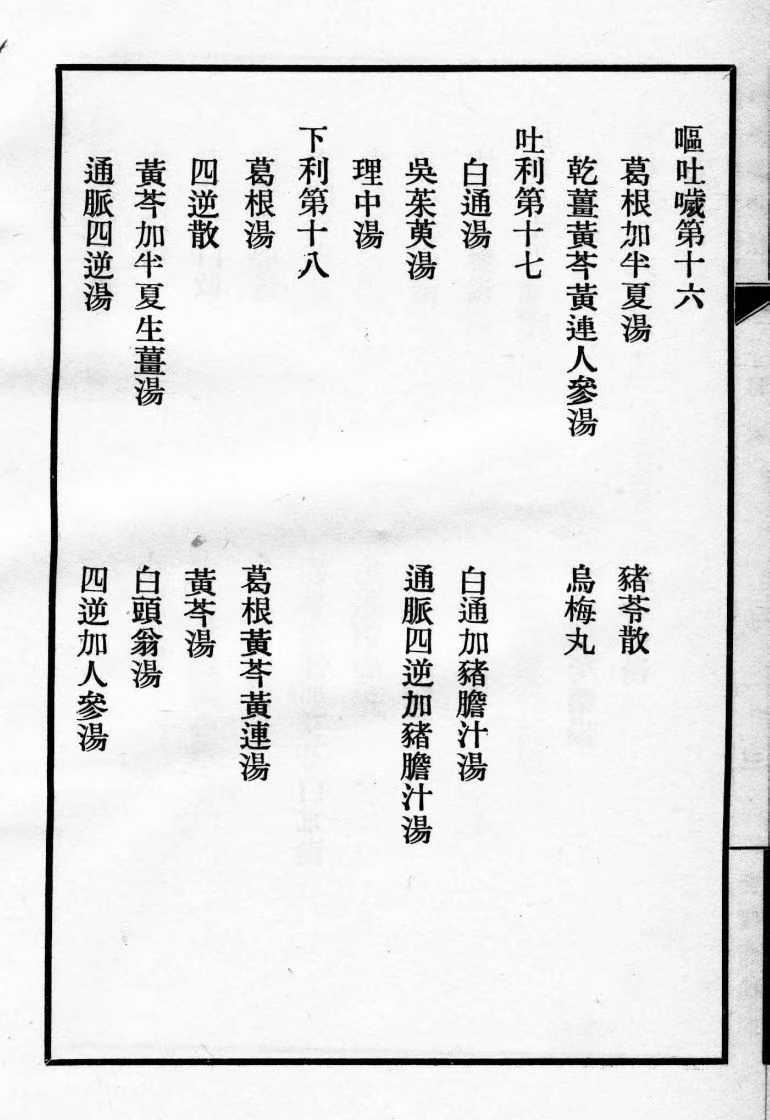 嘔吐噦第十六
葛根加半夏湯　豬苓散
乾薑黃芩黃連人參湯　烏梅丸
吐利第十七
白通湯　白通加豬膽汁湯
吳茱萸湯　通脈四逆加豬膽汁湯
理中湯
下利第十八
葛根湯　葛根黃芩黃連湯
四逆散　黃芩湯
黃芩加半夏生薑湯　白頭翁湯
通脈四逆湯　四逆加人參湯